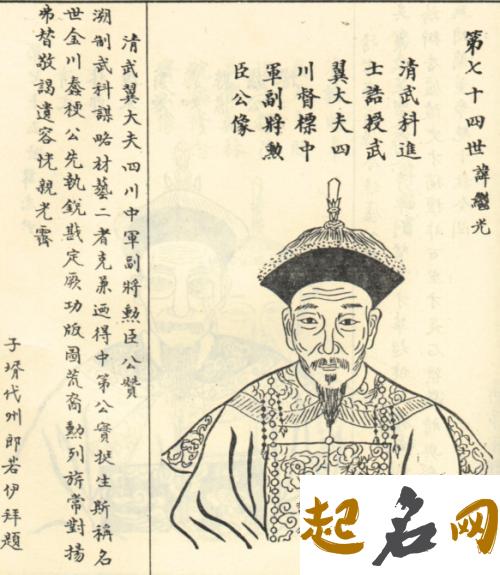 第七十四世諱繼光
清武科進
士誥授武
翼大夫四
川督標中
軍副將勲
臣公像
清武翼大夫四川中軍副將勲臣公贊
溯制武科謀略材藝二者克兼迺得中第公實挺生斯稱名
世金川秦梗公先執銳戡定厥功版圖荒裔勲列旂常對揚
弗替敬謁遺容恍親光霽
子壻代州郎若伊拜題
起名网